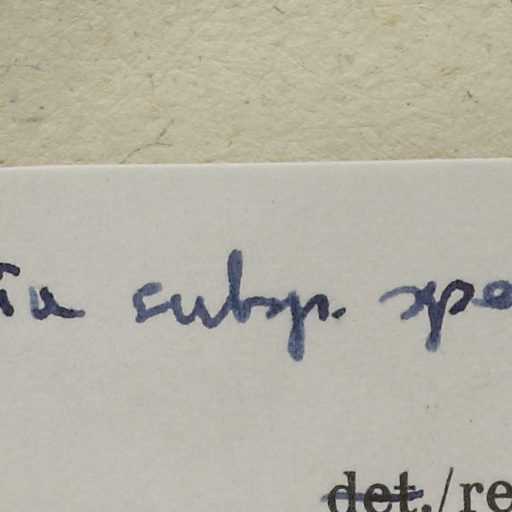 ta subsp. spe
det./re